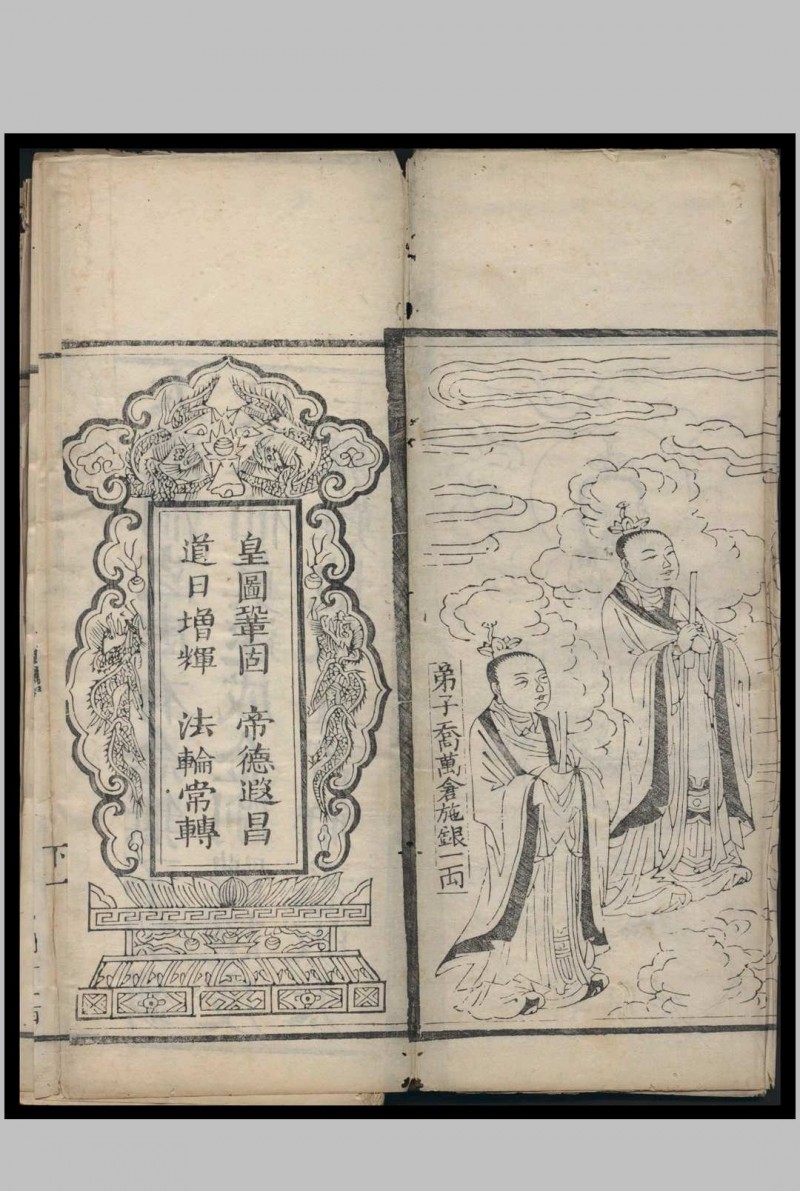 弟子喬萬倉施銀一両
皇圖鞏固 帝德遐昌
道日増輝 法輪常轉
下一